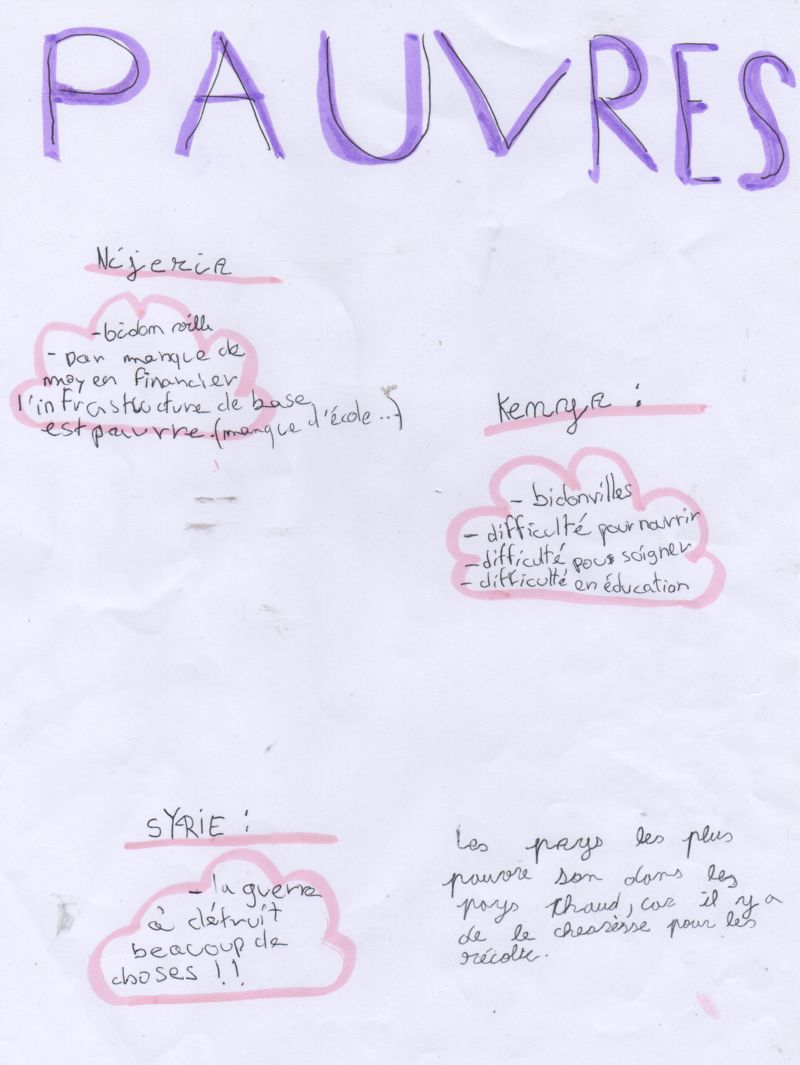 PAUVRES
Nijeria
- bidon ville
- par manque de
moyen financier
l'infrastructure de base
est pauvre. (manque d'école...)
Kennya :
- bidonvilles
- difficulté pour nourrir
- difficulté pour soigner
- difficulté en éducation
SYRIE :
- la guerre
à détruit
beacoup de
choses !!
Les pays les plus
pauvre son dans les
pays chaud, car il y a
de le cheasèsse pour les
récolte.